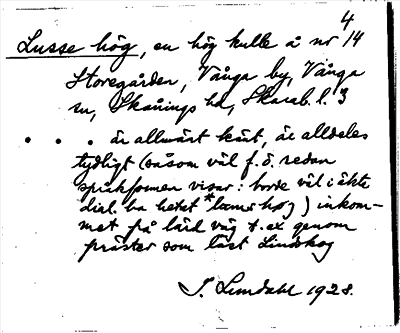 4
Lusse hög, en hög kulle å nr 14
Storegården, Vånga by, Vånga
sn, Skånings hd, Skarab. l. 3
. . . är allmärt känt, är alldeles
tydligt (såsom väl f. ö. redan
språkformen visar: borde väl i äkta
dial. ha hetat * høg) inkom-
met på lärd väg t. ex genom
präster som läst Lindskog
J. Lundahl 1928.